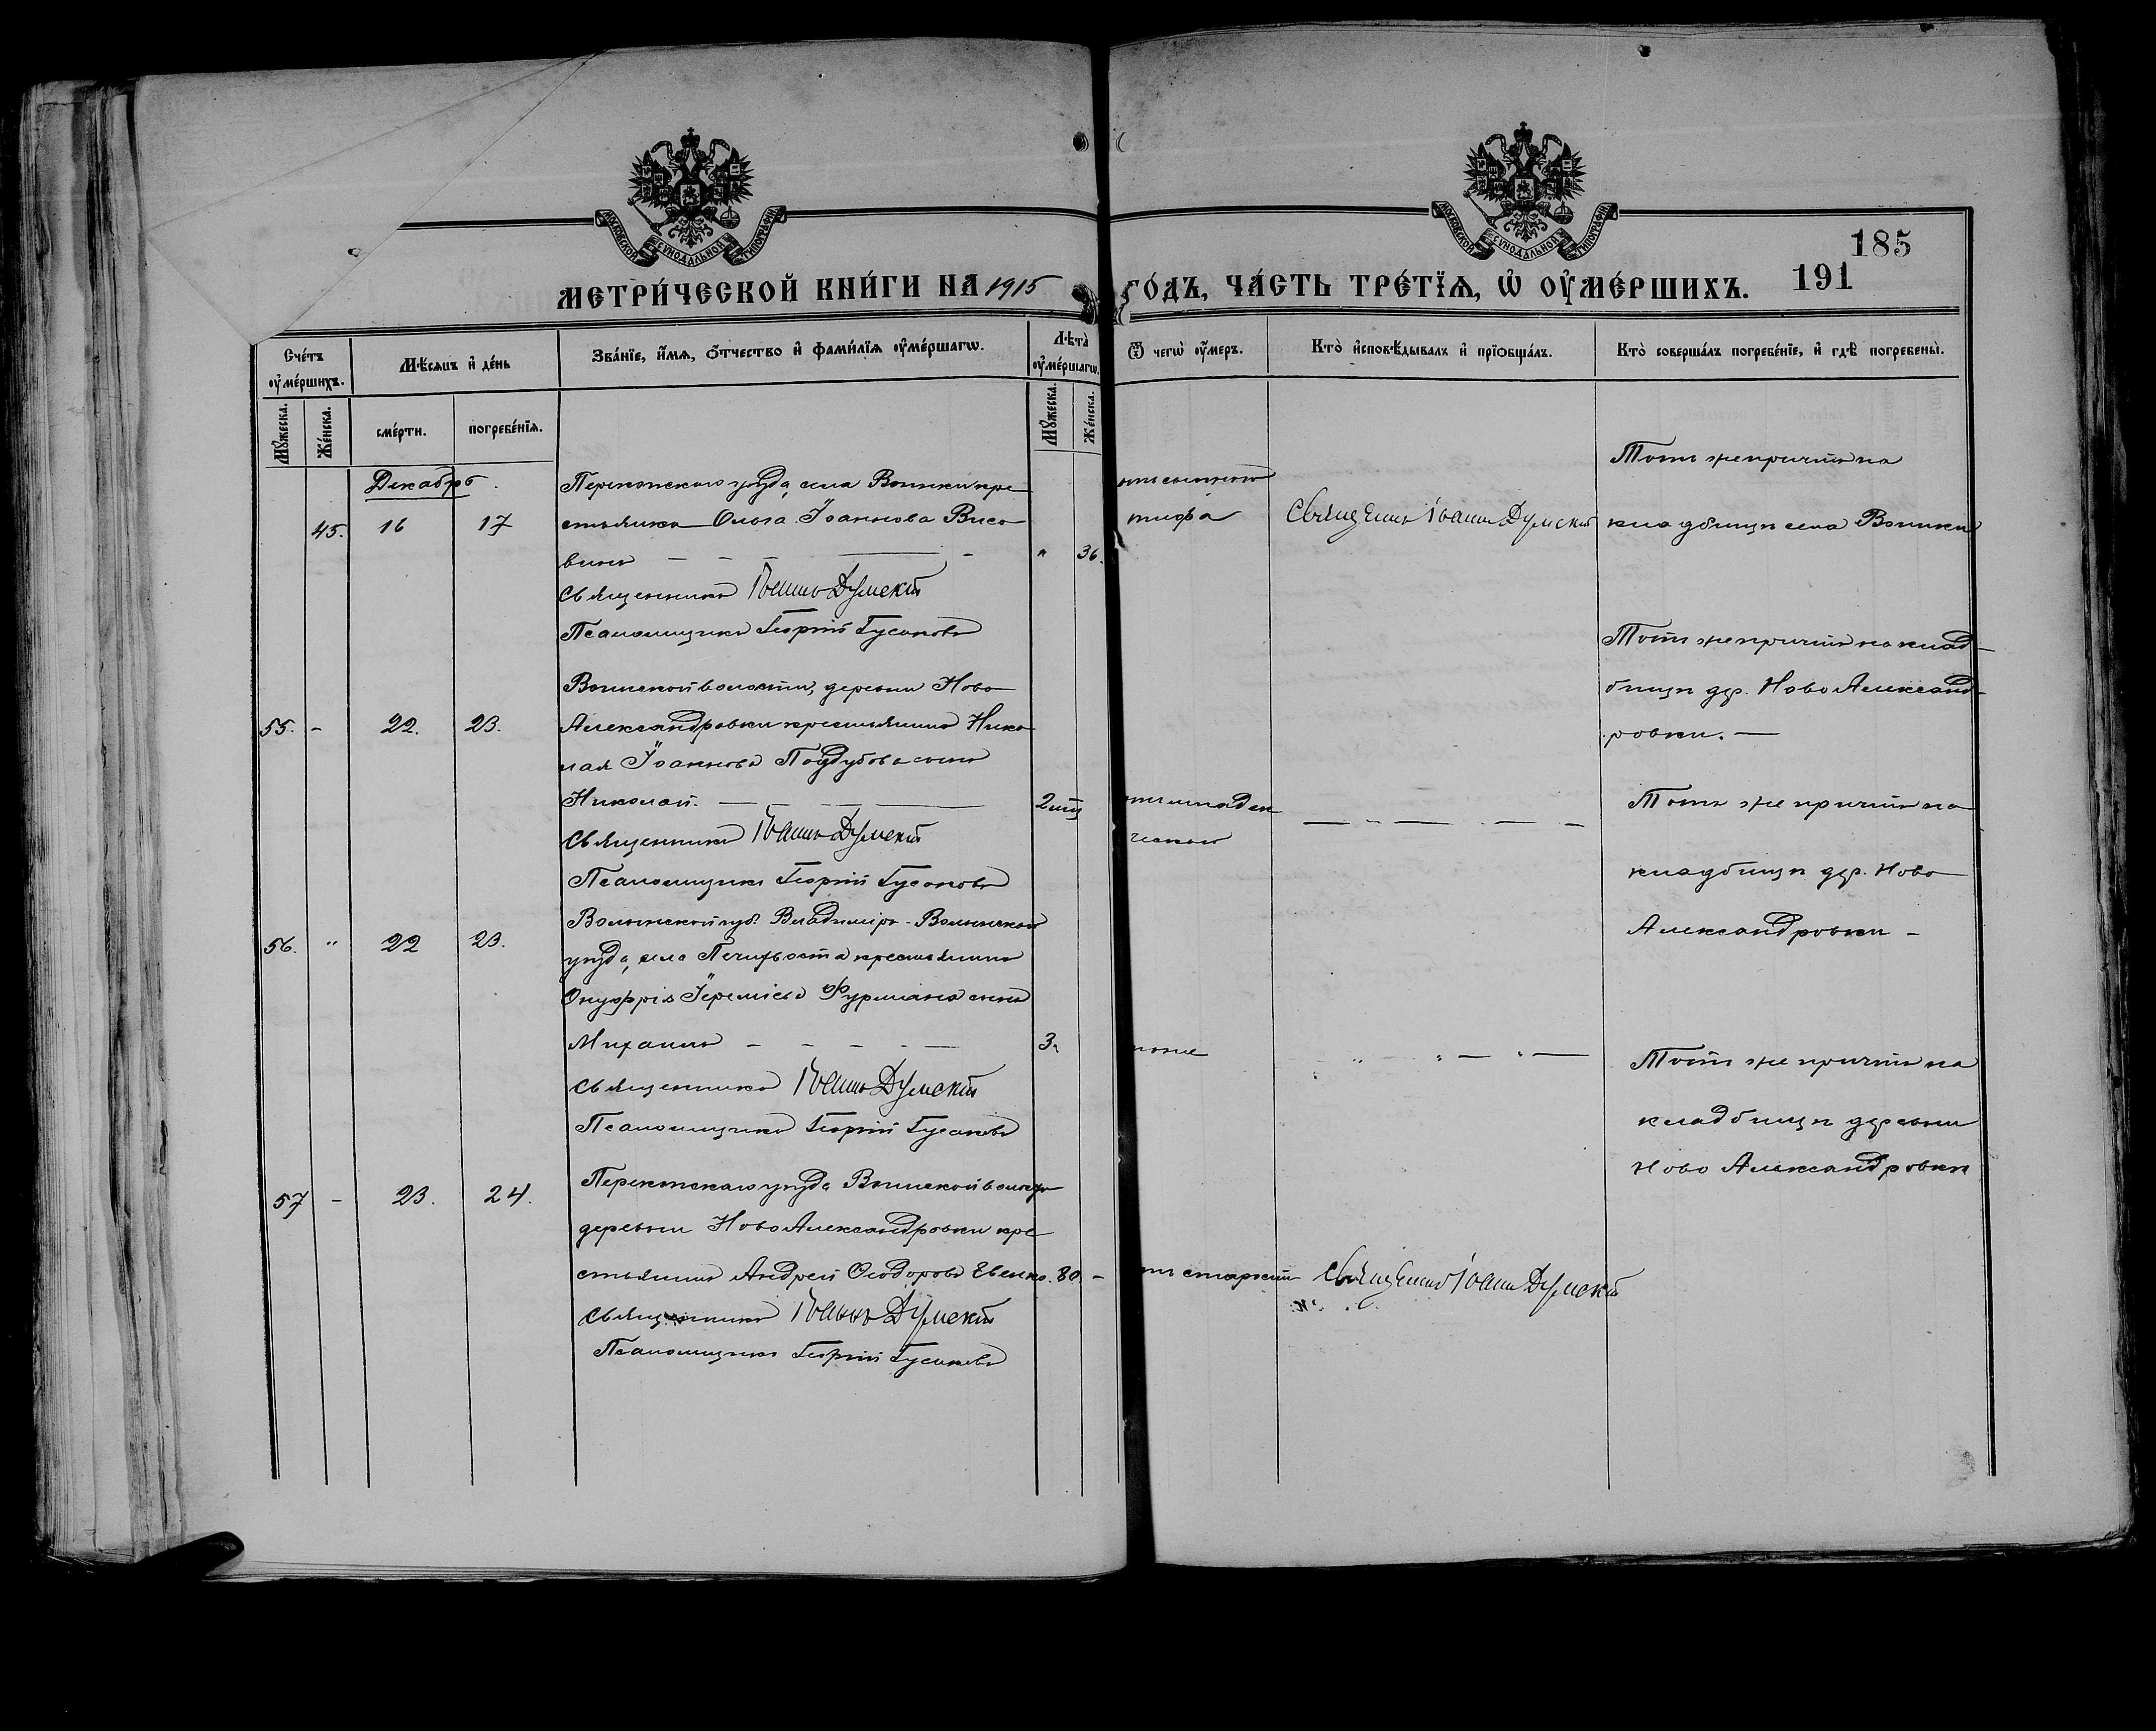 МОСКОВСКОЙ СУНОДАЛЬНОЙ ТИПОГРАФІИ
МОСКОВСКОЙ СУНОДАЛЬНОЙ ТИПОГРАФІИ
185
МЕТРИ́ЧЕСКОЙ КНИ́ГИ НА 1915
ГО́ДЪ, ЧА́СТЬ ТРЕ́ТЇѦ, Ѡ ОУМЕ́РШИХЪ.
191
Сче́тъ оумершихъ.
Мѣ́сяцъ и де́нь
Зва́нїе, и́мя, о́тчество и фами́лїя оуме́ршагѡ.
Лѣта̀ оуме́ршагѡ.
Ѿ чегѡ̀ оу́меръ.
Кто̀ исповѣ́дывалъ и прїобща́лъ.
Кто̀ соверша́лъ погребе́нїе, и гдѣ̀ погребены̀.
Мꙋжеска.
Же́нска.
сме́рти.
погребе́нїя.
Мꙋжеска.
Же́нска.
Декабрь.
45. 16 17
Перекопскаго уѣзда, села Воинки кре
стьянка Ольга Іоаннова
" 36.
Священникъ Іоаннъ Думскій
Псаломщикъ Георгій Гусаковъ
тифа
Священникъ Іоаннъ Думскій
Тотъ же причтъ на
кладбищѣ села Воинки
55. - 22. 23.
Воинской волости, деревни Ново
Александровки крестьянина Нико
лая Іоаннова Поддубова сынъ
Николай.
2
Священникъ Іоаннъ Думскій
Псаломщикъ Георгій Гусаковъ
отъ младен
ческой
Тотъ же причтъ на клад-
бищѣ дер. Ново Александ-
ровки. —
56. " 22 23.
Волынской губ. Владиміръ-Волынскаго
уѣзда, села крестьянина
Онуфрія Іереміева Фурмана сынъ
Михаилъ
3
Священникъ Іоаннъ Думскій
Псаломщикъ Георгій Гусаковъ
тоже
Тотъ же причтъ на
кладбищѣ дер. Ново
Александровки -
57 - 23. 24.
Перекопскаго уѣзда Воинской волости
деревни Ново Александровки кре
стьянинъ Андрей Ѳеодоровъ Евенко. 80. -
Священникъ Іоаннъ Думскій
Псаломщикъ Георгій Гусаковъ
отъ старости
Священникъ Іоаннъ Думскій
Тотъ же причтъ на
кладбищѣ деревни
Ново Александровки